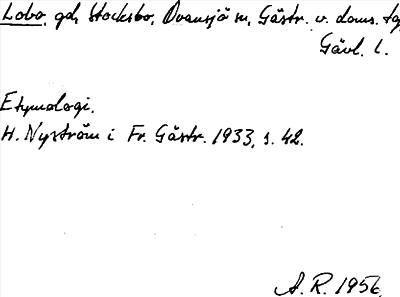 Lobo, gd, Stocksbo, Ovansjö sn, Gästr. v. doms. tg,
Gävl. l.
Etymologi.
H. Nyström i Fr. Gästr. 1933, s. 42.
A. R. 1956.